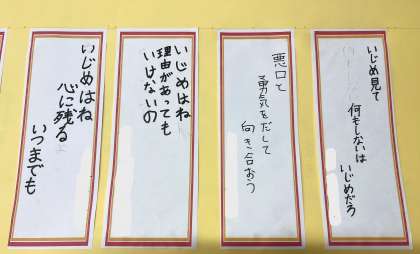 いじめ見て
何もしないは
いじめだろ
悪口と
勇気をだして
向き合おう
いじめはね
理由があっても
いけないの
いじめはね
心に残る
いつまでも